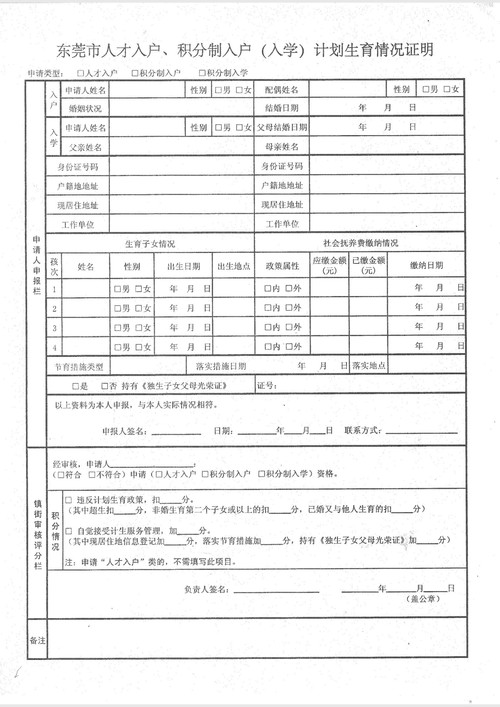 东莞市人才入户、积分制入户（入学）计划生育情况证明
申请类型： □人才入户 □积分制入户 □积分制入学
申请人申报栏
入户
申请人姓名 性别 □男 □女 配偶姓名 性别 □男 □女
婚姻状况 结婚日期 年 月 日
入学
申请人姓名 性别 □男 □女 父母结婚日期 年 月 日
父亲姓名 母亲姓名
身份证号码 身份证号码
户籍地地址 户籍地地址
现居住地址 现居住地址
工作单位 工作单位
生育子女情况 社会抚养费缴纳情况
孩次 姓名 性别 出生日期 出生地点 政策属性 应缴金额（元） 已缴金额（元） 缴纳日期
1 □男 □女 年 月 日 □内 □外 年 月 日
2 □男 □女 年 月 日 □内 □外 年 月 日
3 □男 □女 年 月 日 □内 □外 年 月 日
4 □男 □女 年 月 日 □内 □外 年 月 日
节育措施类型 落实措施日期 年 月 日 落实地点
□是 □否 持有《独生子女父母光荣证》 证号：
以上资料为本人申报，与本人实际情况相符。
申报人签名：________ 日期：______年____月____日 联系方式：________
镇街审核评分栏
经审核，申请人____________：
（□符合 □不符合）申请（□人才入户 □积分制入户 □积分制入学）资格。
积分情况
□ 违反计划生育政策，扣____分。
（其中超生扣____分，非婚生育第二个子女或以上的扣____分，已婚又与他人生育的扣____分）
□ 自觉接受计生服务管理，加____分。
（其中现居住地信息登记加____分，落实节育措施加____分，持有《独生子女父母光荣证》加____分）
注：申请“人才入户”类的，不需填写此项目。
负责人签名：________ ______年____月____日
（盖公章）
备注